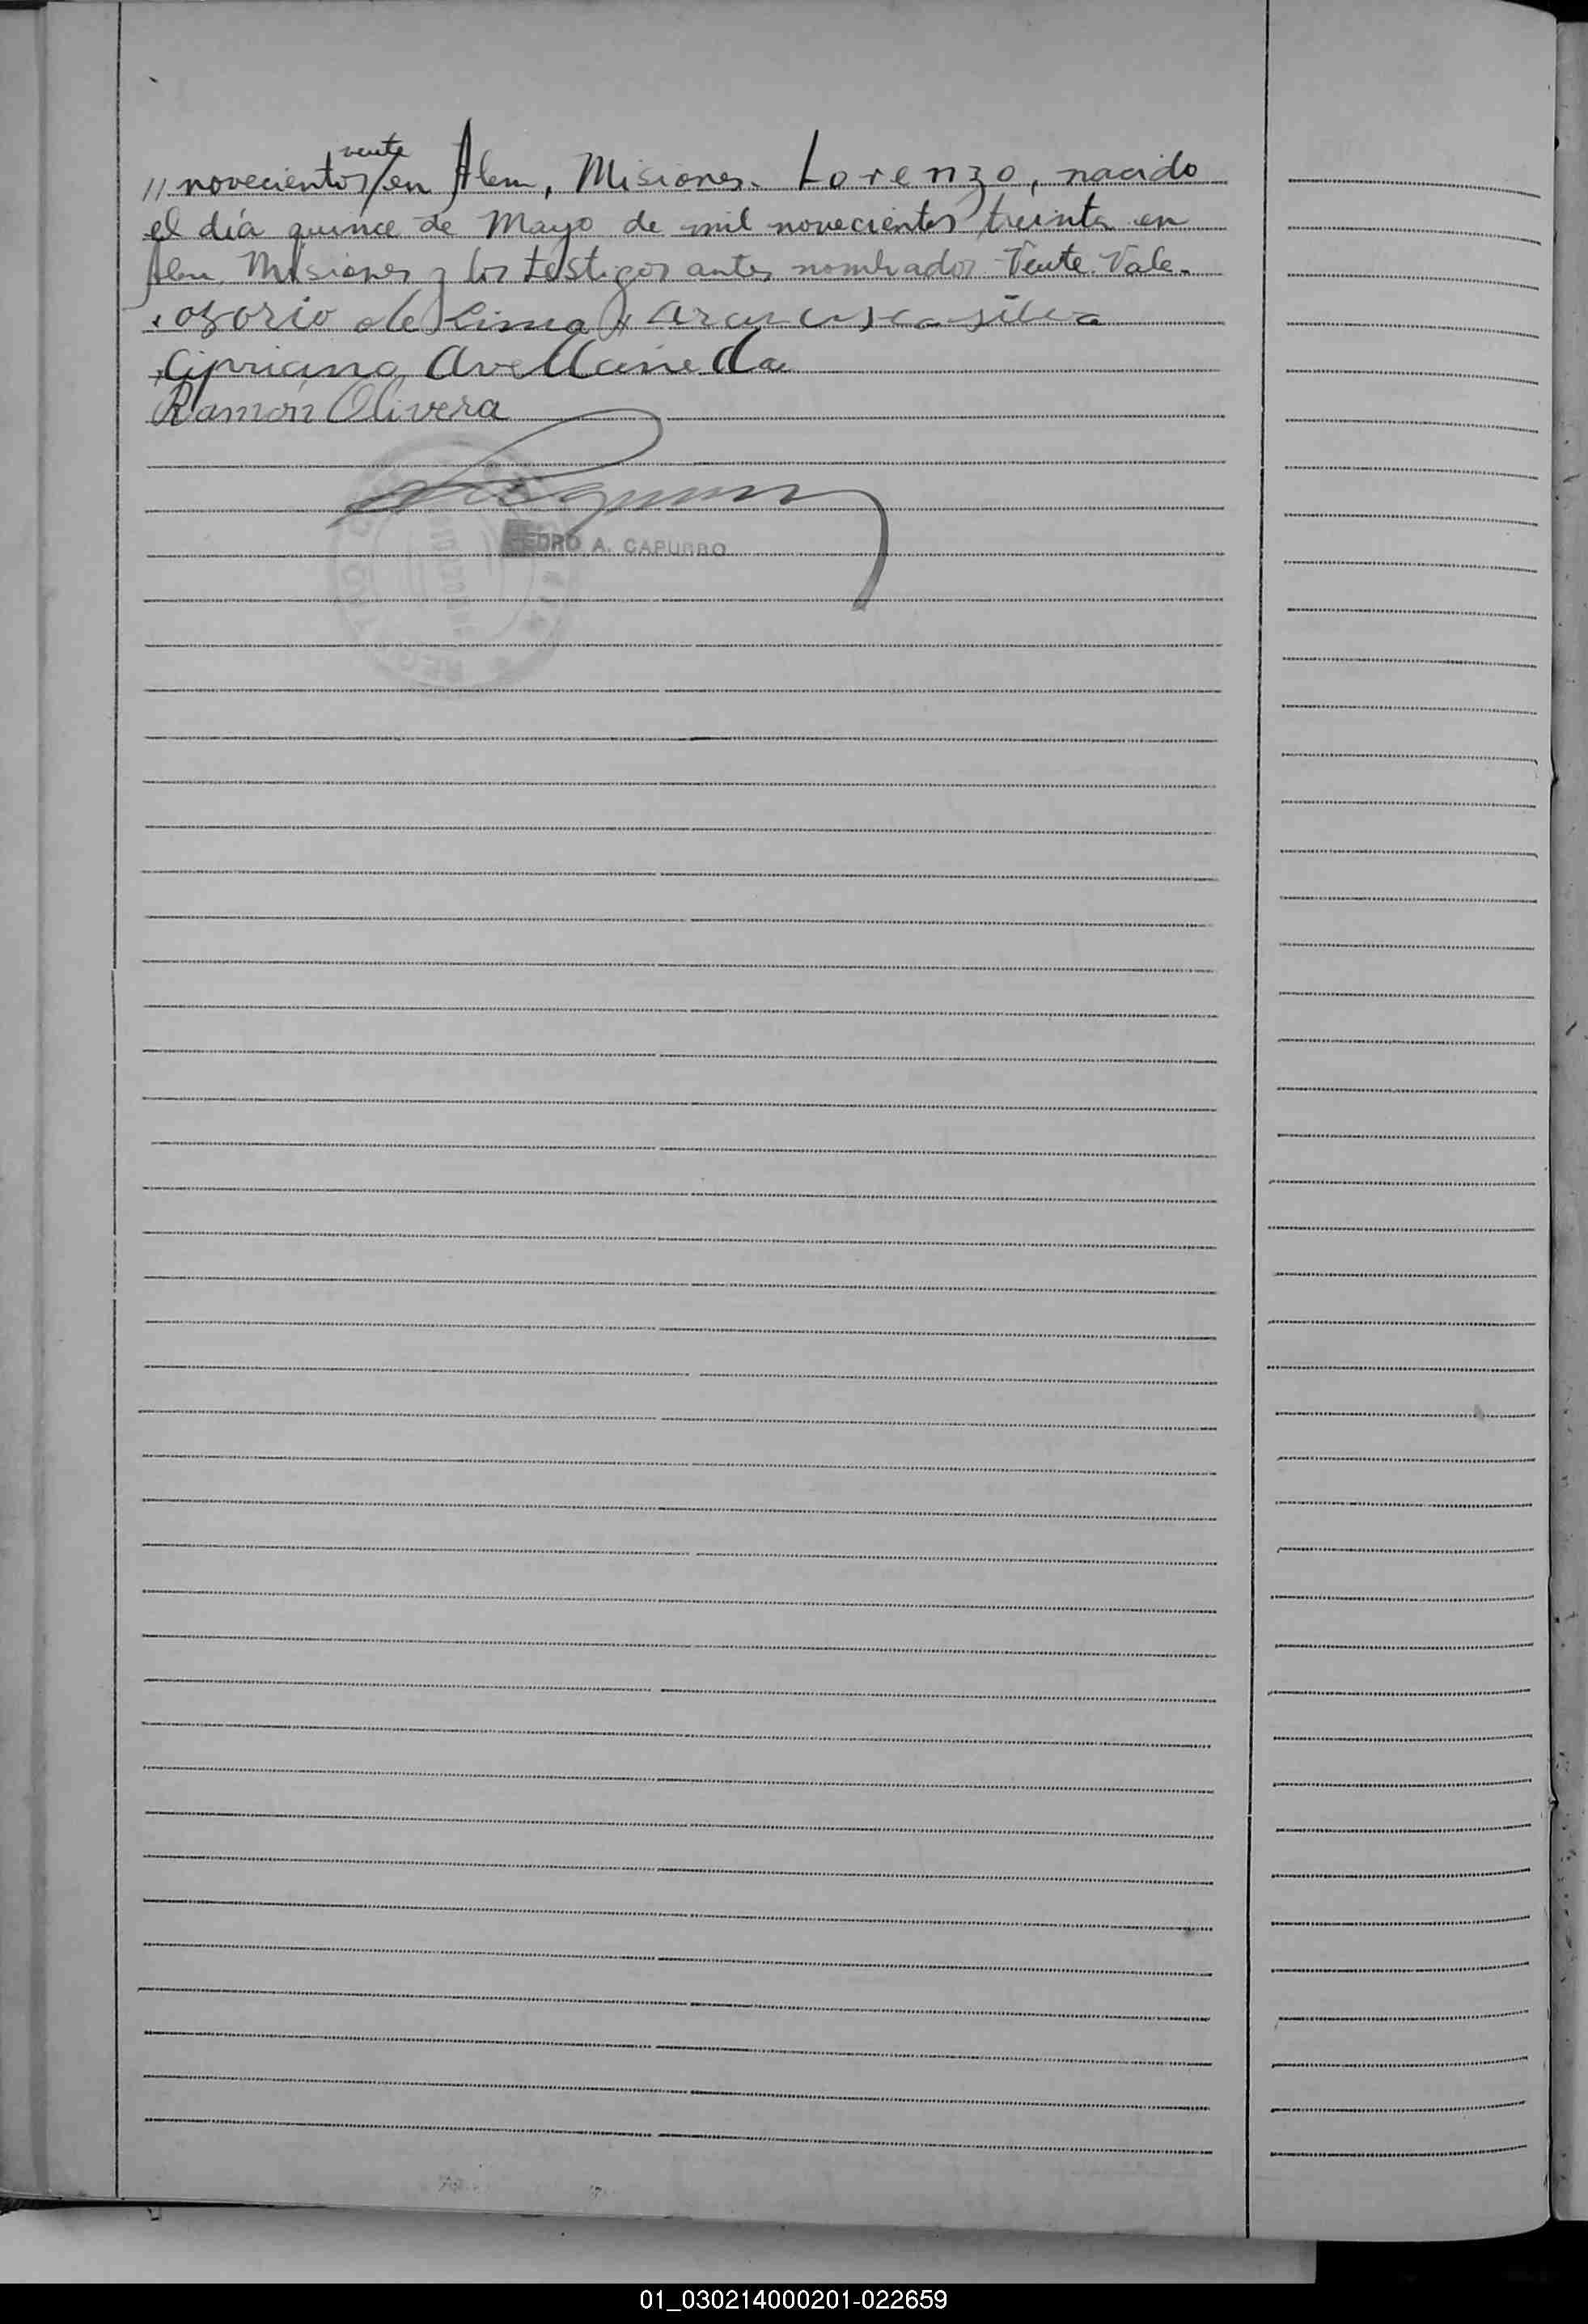 veinte
// novecientos/en Alem, Misiones. Lorenzo, nacido
el día quince de Mayo de mil novecientos treinta en
Alem, Misiones y los testigos antes nombrados Veinte. Vale.
ozorio de Lima silva
Cipriano Avellaneda
Ramón Olivera
PEDRO A. CAPURRO
01_030214000201-022659